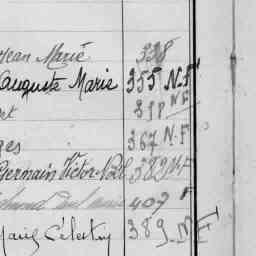 Jean Marie 338
Auguste Marie 355 N.F
rt 318 N F
ges 367 N.F
Germain Victor Noël 382 N F
407 F
Marie Célestin 389 N F